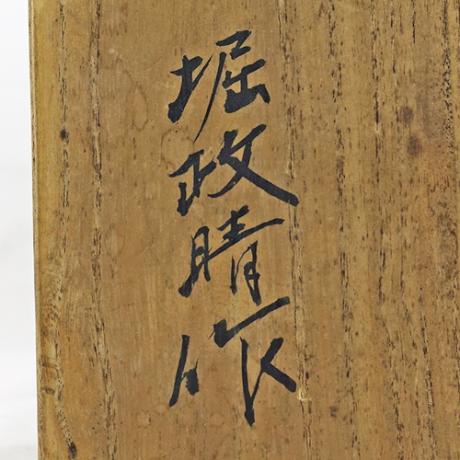 堀政晴作